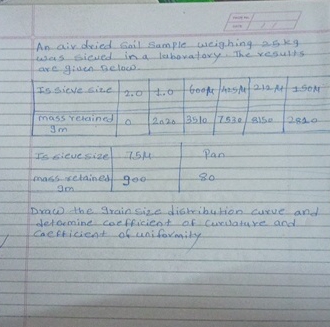 An air dried Soil Sample weighing 25 kg
was sieved in a laboratory. The results
are given below.
Is Sieve size 2.0 1.0 600μ 425μ 212μ 150μ
mass retained gm 0 2020 3510 7530 8150 2810
Is sieve size 75μ Pan
mass retained gm 900 80
Draw the grain size distribution curve and
determine coefficient of curvature and
Coefficient of uniformity